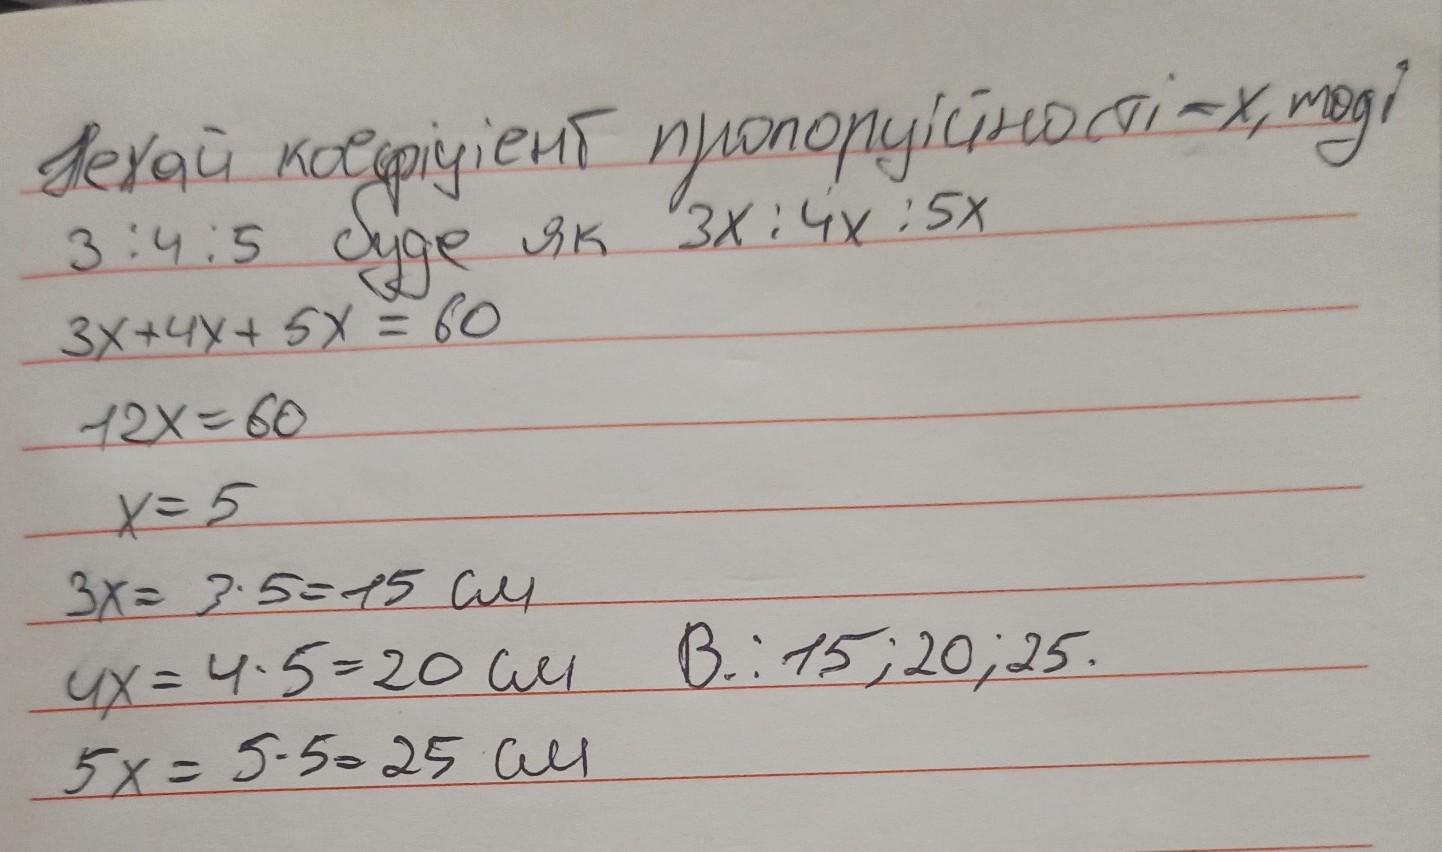 Нехай коефіцієнт пропорційності - х, тоді
3 : 4 : 5 буде як 3х : 4х : 5х
3х+4х+ 5х = 60
12х = 60
х = 5
3х = 3·5=15 см
4х = 4·5=20 см В.: 15; 20; 25.
5х = 5·5= 25 см